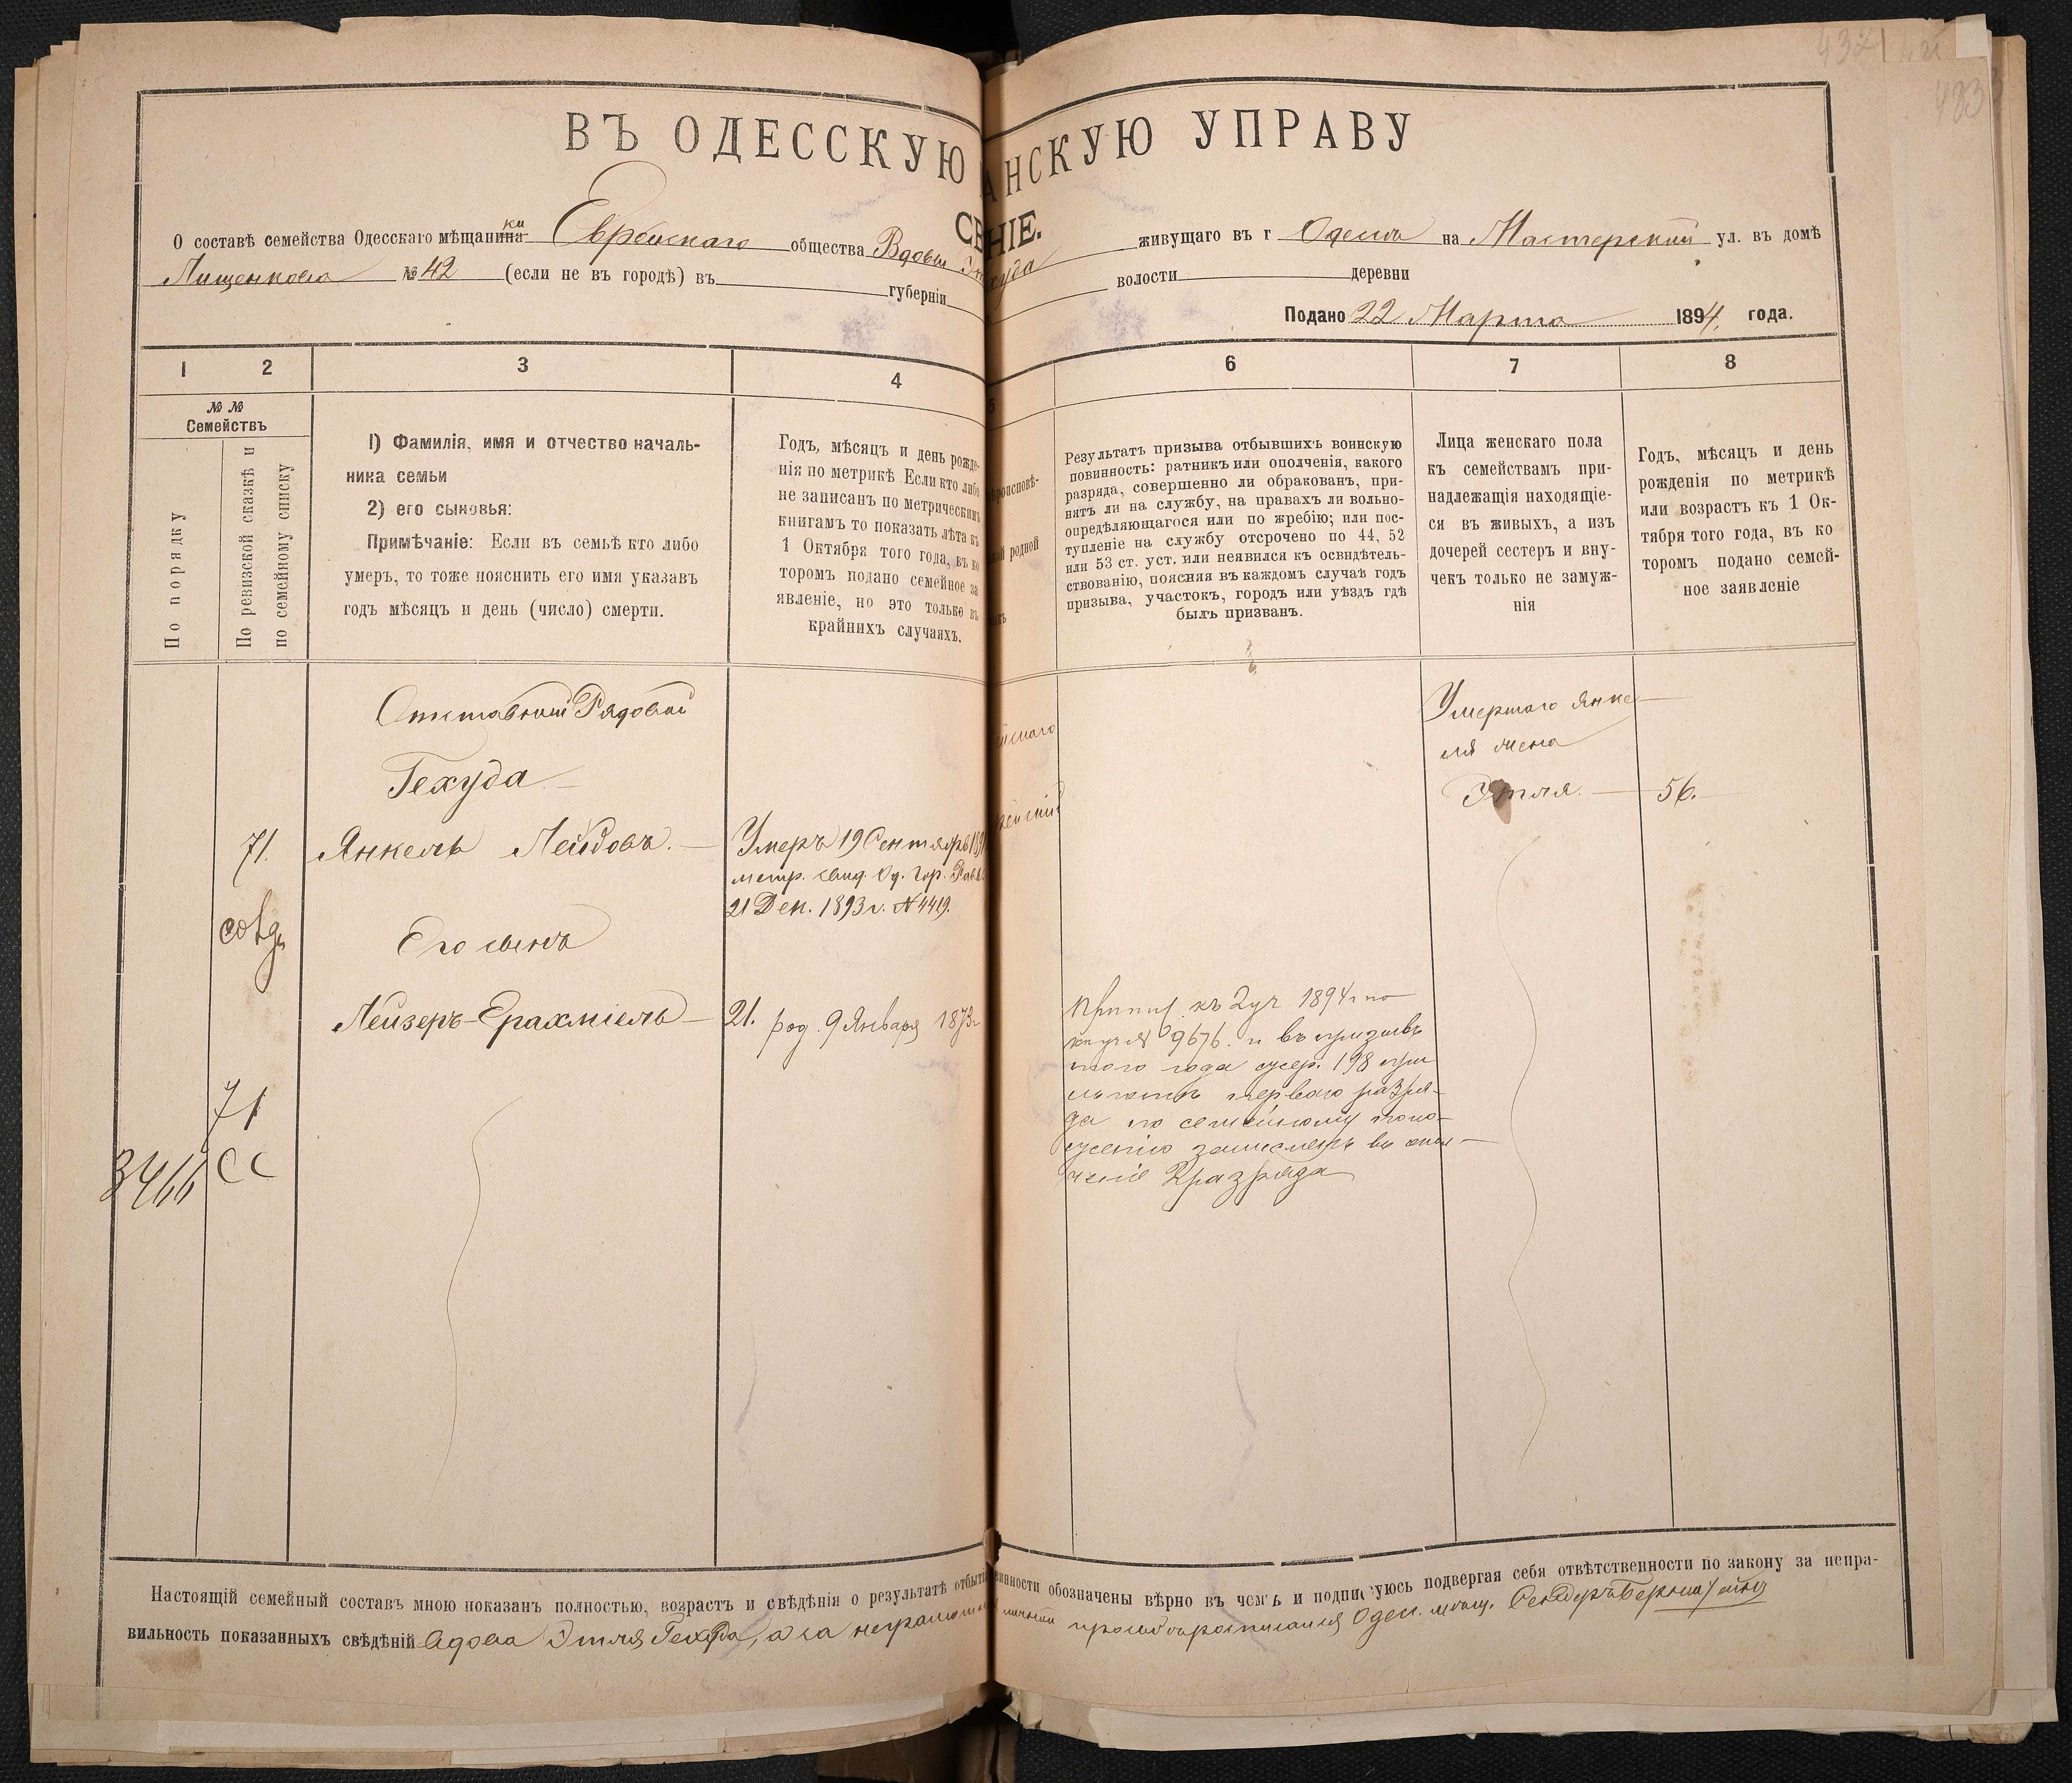 ВЪ ОДЕССКУЮ АНСКУЮ УПРАВУ
СВ НІЕ.
О составѣ семейства Одесскаго мѣщанина ки Еврейскаго общества Вдовы живущаго въ г Одессѣ на Мастерской ул. въ домѣ
Лищенкова № 42 (если не въ городѣ) въ губерніи волости деревни
Подано 22 Марта 1894. года.
1 2 3 4 5 6 7 8
№ №
Семействъ
По порядку
По ревизской сказкѣ и
по семейному списку
1) Фамилія, имя и отчество началь-
ника семьи
2) его сыновья:
Примѣчаніе: Если въ семьѣ кто либо
умеръ, то тоже пояснить его имя указавъ
годъ мѣсяцъ и день (число) смерти.
Годъ, мѣсяцъ и день рожде-
нія по метрикѣ Если кто либо
не записанъ по метрическимъ
книгамъ то показать лѣта къ
1 Октября того года, въ ко
торомъ подано семейное за
явленіе, но это только въ
крайнихъ случаяхъ.
роисповѣ-
родной
Результатъ призыва отбывшихъ воинскую
повинность: ратникъ или ополченія, какого
разряда, совершенно ли обракованъ, при-
нятъ ли на службу, на правахъ ли вольно-
опредѣляющагося или по жребію; или пос-
тупленіе на службу отсрочено по 44, 52
или 53 ст. уст. или неявился къ освидѣтель-
ствованію, поясняя въ каждомъ случаѣ годъ
призыва, участокъ, городъ или уѣздъ гдѣ
былъ призванъ.
Лица женскаго пола
къ семействамъ при-
надлежащія находящіе-
ся въ живыхъ, а изъ
дочерей сестеръ и вну-
чекъ только не замуж-
нія
Годъ, мѣсяцъ и день
рожденія по метрикѣ
или возрастъ къ 1 Ок-
тября того года, въ ко
торомъ подано семей-
ное заявленіе
Отставной Рядовой
Гехуда
71. Янкель Лейбовъ.
Умеръ 19 Сентября
метр. свид. Од. Гор. Рав.
21 Дек. 1893 г. № 4419.
Его сынъ
Лейзеръ-Ерахміель 21. род. 9 Января 1873 г
71
3466 СС
къ 2 уч 1894 г по
9676. и въ призывъ
того года жер. 198 при
льготѣ перваго разря-
да по семейному поло-
женію зачисленъ въ опол-
ченіе разряда
Умершаго Янке-
ля жена
Этля. 56.
Настоящій семейный составъ мною показанъ полностью, возрастъ и свѣдѣнія о результатѣ отбыті винности обозначены вѣрно въ чемъ и подписуюсь подвергая себя отвѣтственности по закону за непра-
вильность показанныхъ свѣдѣній Вдова Этля Гехуда, а за неграмотн личной просьбѣ росписался Одес. мѣщ.